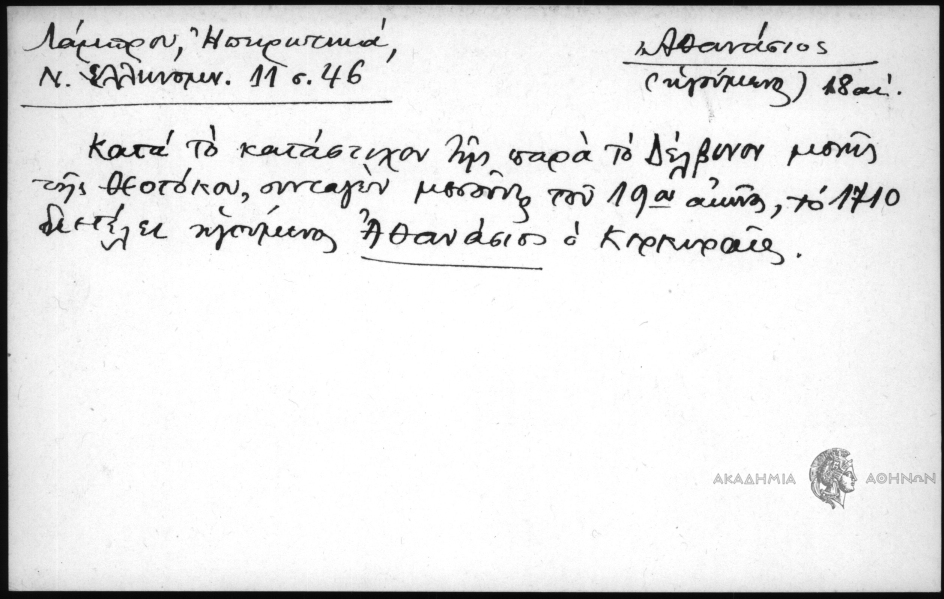 Λάμπρου, Ἠπειρωτικά,
Ν. Ἑλληνομν. 11 σ. 46
Ἀθανάσιος
(ἡγούμενος) 18 αἰ.
Κατά τὸ κατάστιχον τῆς παρὰ τὸ Δέλβινον μονῆς
τῆς Θεοτόκου, συνταγὲν μεσοῦντος τοῦ 19ου αἰῶνος, τὸ 1710
διετέλει ἡγούμενος Ἀθανάσιος ὁ Κερκυραῖος.
ΑΚΑΔΗΜΙΑ ΑΘΗΝΩΝ